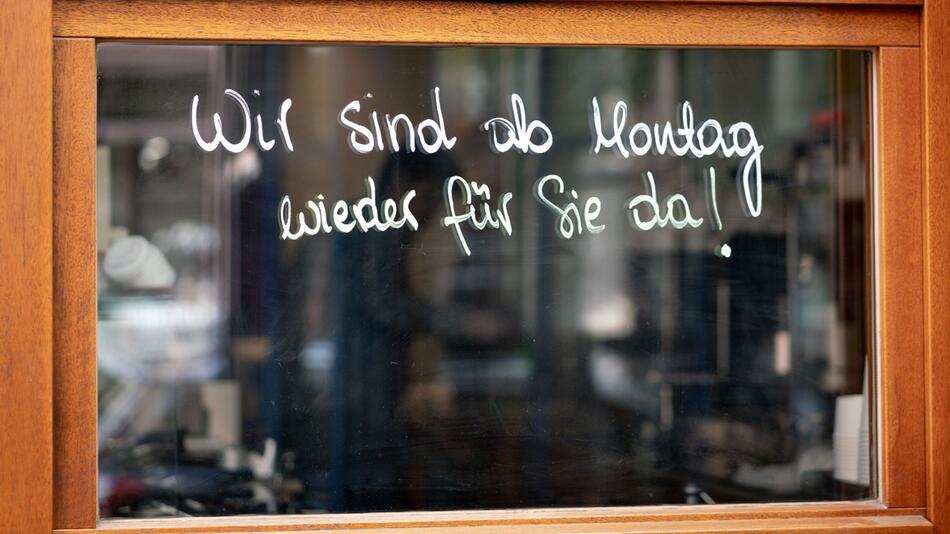 Wir sind ab Montag
wieder für Sie da!